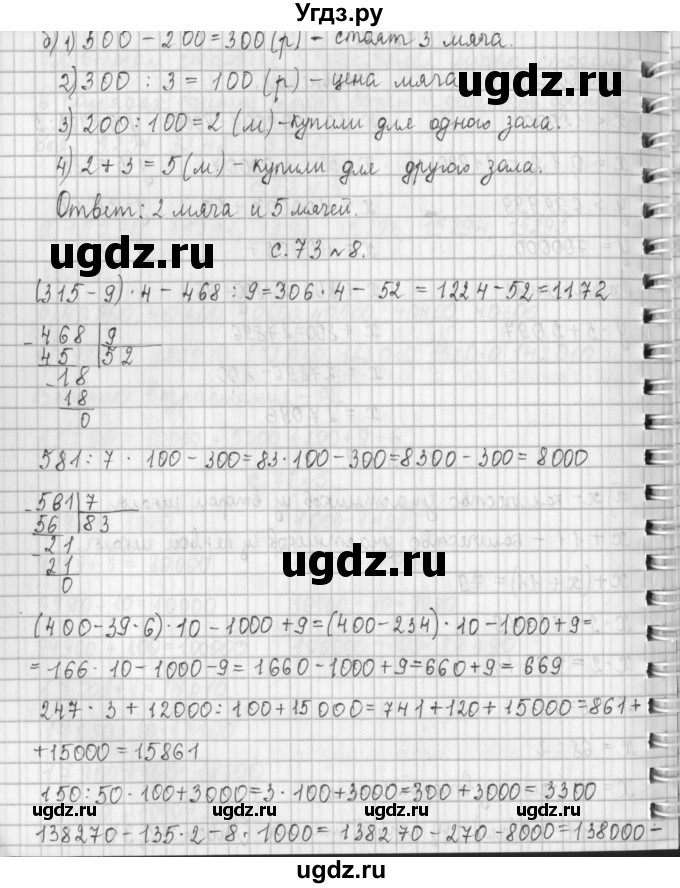 Угдз.ру
б) 1) 500 - 200 = 300 (р) - стоят 3 мяча.
2) 300 : 3 = 100 (р) - цена мяча
ugdz.ru
3) 200 : 100 = 2 (м) - купили для одного зала.
4) 2 + 3 = 5 (м) - купили для другого зала.
Ответ: 2 мяча и 5 мячей.
ugdz.ru
с. 73 № 8.
(315 - 9) · 4 - 468 : 9 = 306 · 4 - 52 = 1224 - 52 = 1172
- 468 | 9
45 | 52
- 18
18
0
581 : 7 · 100 - 300 = 83 · 100 - 300 = 8300 - 300 = 8000
- 561 | 7
56 | 83
- 21
21
0
ugdz.ru
(400 - 39 · 6) · 10 - 1000 + 9 = (400 - 234) · 10 - 1000 + 9 =
= 166 · 10 - 1000 - 9 = 1660 - 1000 + 9 = 660 + 9 = 669
247 · 3 + 12000 : 100 + 15000 = 741 + 120 + 15000 = 861 +
+ 15000 = 15861
ugdz.ru
150 : 50 · 100 + 3000 = 3 · 100 + 3000 = 300 + 3000 = 3300
ugdz.ru ugdz.ru
138270 - 135 · 2 - 8 · 1000 = 138270 - 270 - 8000 = 138000 -
ugdz.ru